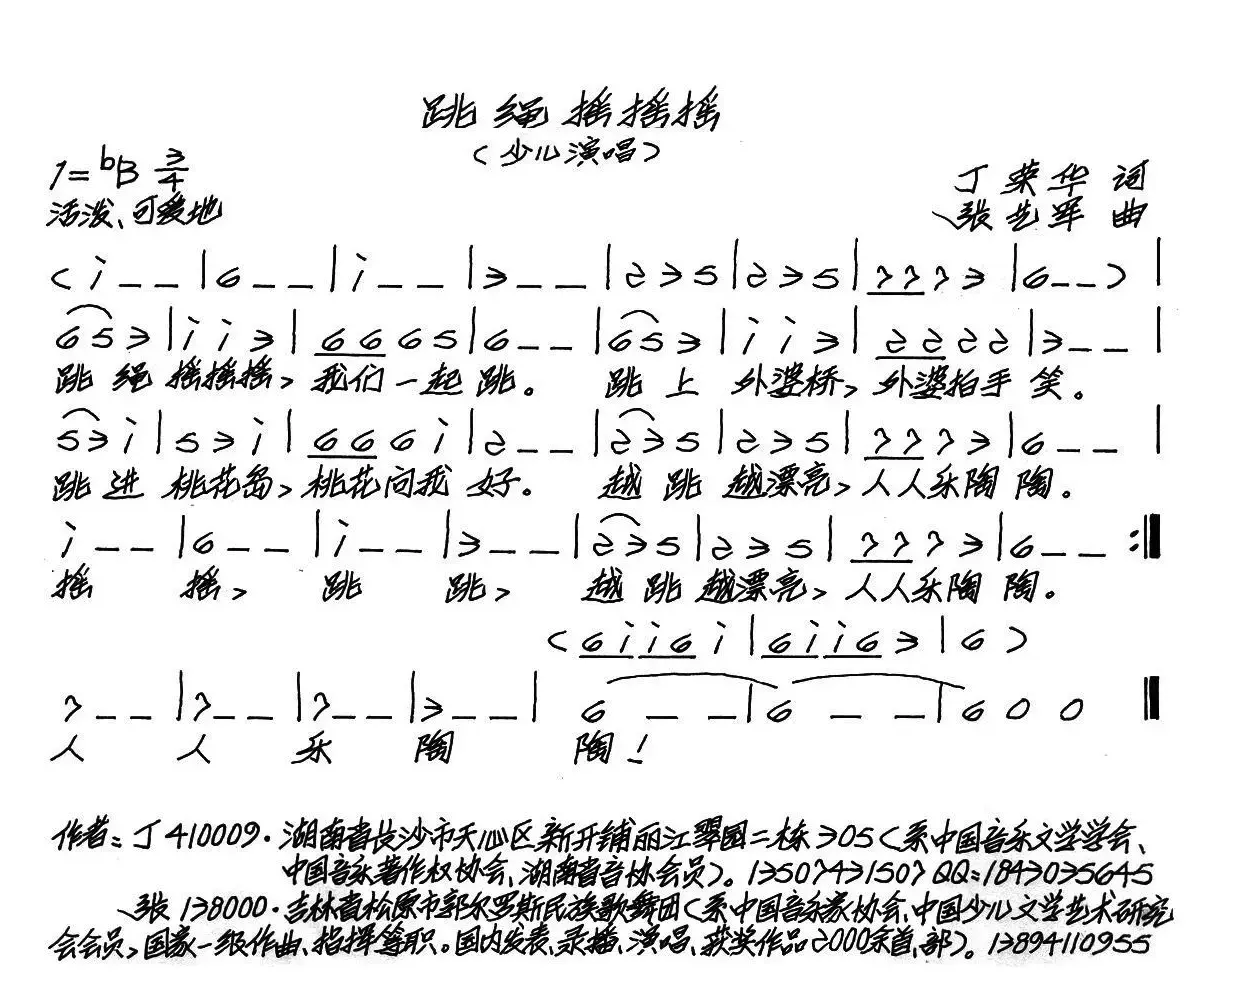 跳绳摇摇摇
(少儿演唱)
1=bB 3/4
丁荣华 词
活泼、可爱地
张先军 曲
(i - - | 6 - - | i - - | 3 - - | 2 3 5 | 2 3 5 | 7 7 7 3 | 6 - - ) |
6 5 3 | i i 3 | 6 6 6 5 | 6 - - | 6 5 3 | i i 3 | 2 2 2 2 | 3 - - |
跳 绳 摇摇摇, 我们一起 跳。 跳 上 外婆桥, 外婆拍手 笑。
5 3 i | 5 3 i | 6 6 6 i | 2 - - | 2 3 5 | 2 3 5 | 7 7 7 3 | 6 - - |
跳 进 桃花岛, 桃花问我 好。 越 跳 越漂亮, 人人乐陶 陶。
i - - | 6 - - | i - - | 3 - - | 2 3 5 | 2 3 5 | 7 7 7 3 | 6 - - :‖
摇 摇, 跳 跳, 越 跳 越漂亮, 人人乐陶 陶。
(6 i i 6 i | 6 i i 6 3 | 6 )
7 - - | 7 - - | 7 - - | 3 - - | 6 - - | 6 - - | 6 0 0 ‖
人 人 乐 陶 陶!
作者:丁 410009·湖南省长沙市天心区新开铺丽江翠园二栋305(系中国音乐文学学会、
中国音乐著作权协会、湖南省音协会员)。13507431507 QQ:1843035645
张 138000·吉林省松原市郭尔罗斯民族歌舞团(系中国音乐家协会、中国少儿文学艺术研究
会会员,国家一级作曲、指挥等职。国内发表、录播、演唱、获奖作品2000余首、部)。13894110955